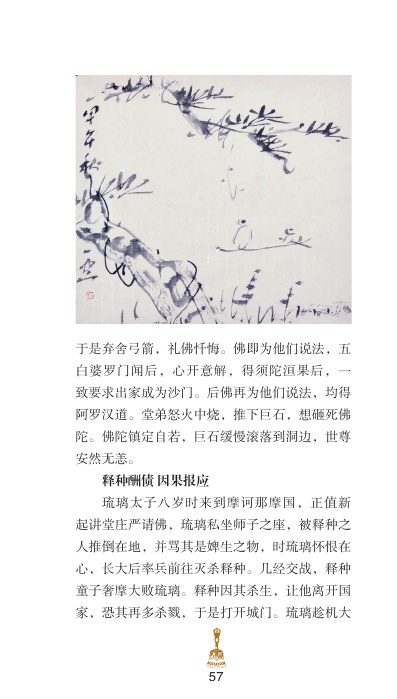 甲午秋
于是弃舍弓箭，礼佛忏悔。佛即为他们说法，五
白婆罗门闻后，心开意解，得须陀洹果后，一
致要求出家成为沙门。后佛再为他们说法，均得
阿罗汉道。堂弟怒火中烧，推下巨石，想砸死佛
陀。佛陀镇定自若，巨石缓慢滚落到洞边，世尊
安然无恙。
释种酬债 因果报应
琉璃太子八岁时来到摩诃那摩国，正值新
起讲堂庄严请佛，琉璃私坐师子之座，被释种之
人推倒在地，并骂其是婢生之物，时琉璃怀恨在
心，长大后率兵前往灭杀释种。几经交战，释种
童子奢摩大败琉璃。释种因其杀生，让他离开国
家，恐其再多杀戮，于是打开城门。琉璃趁机大
57